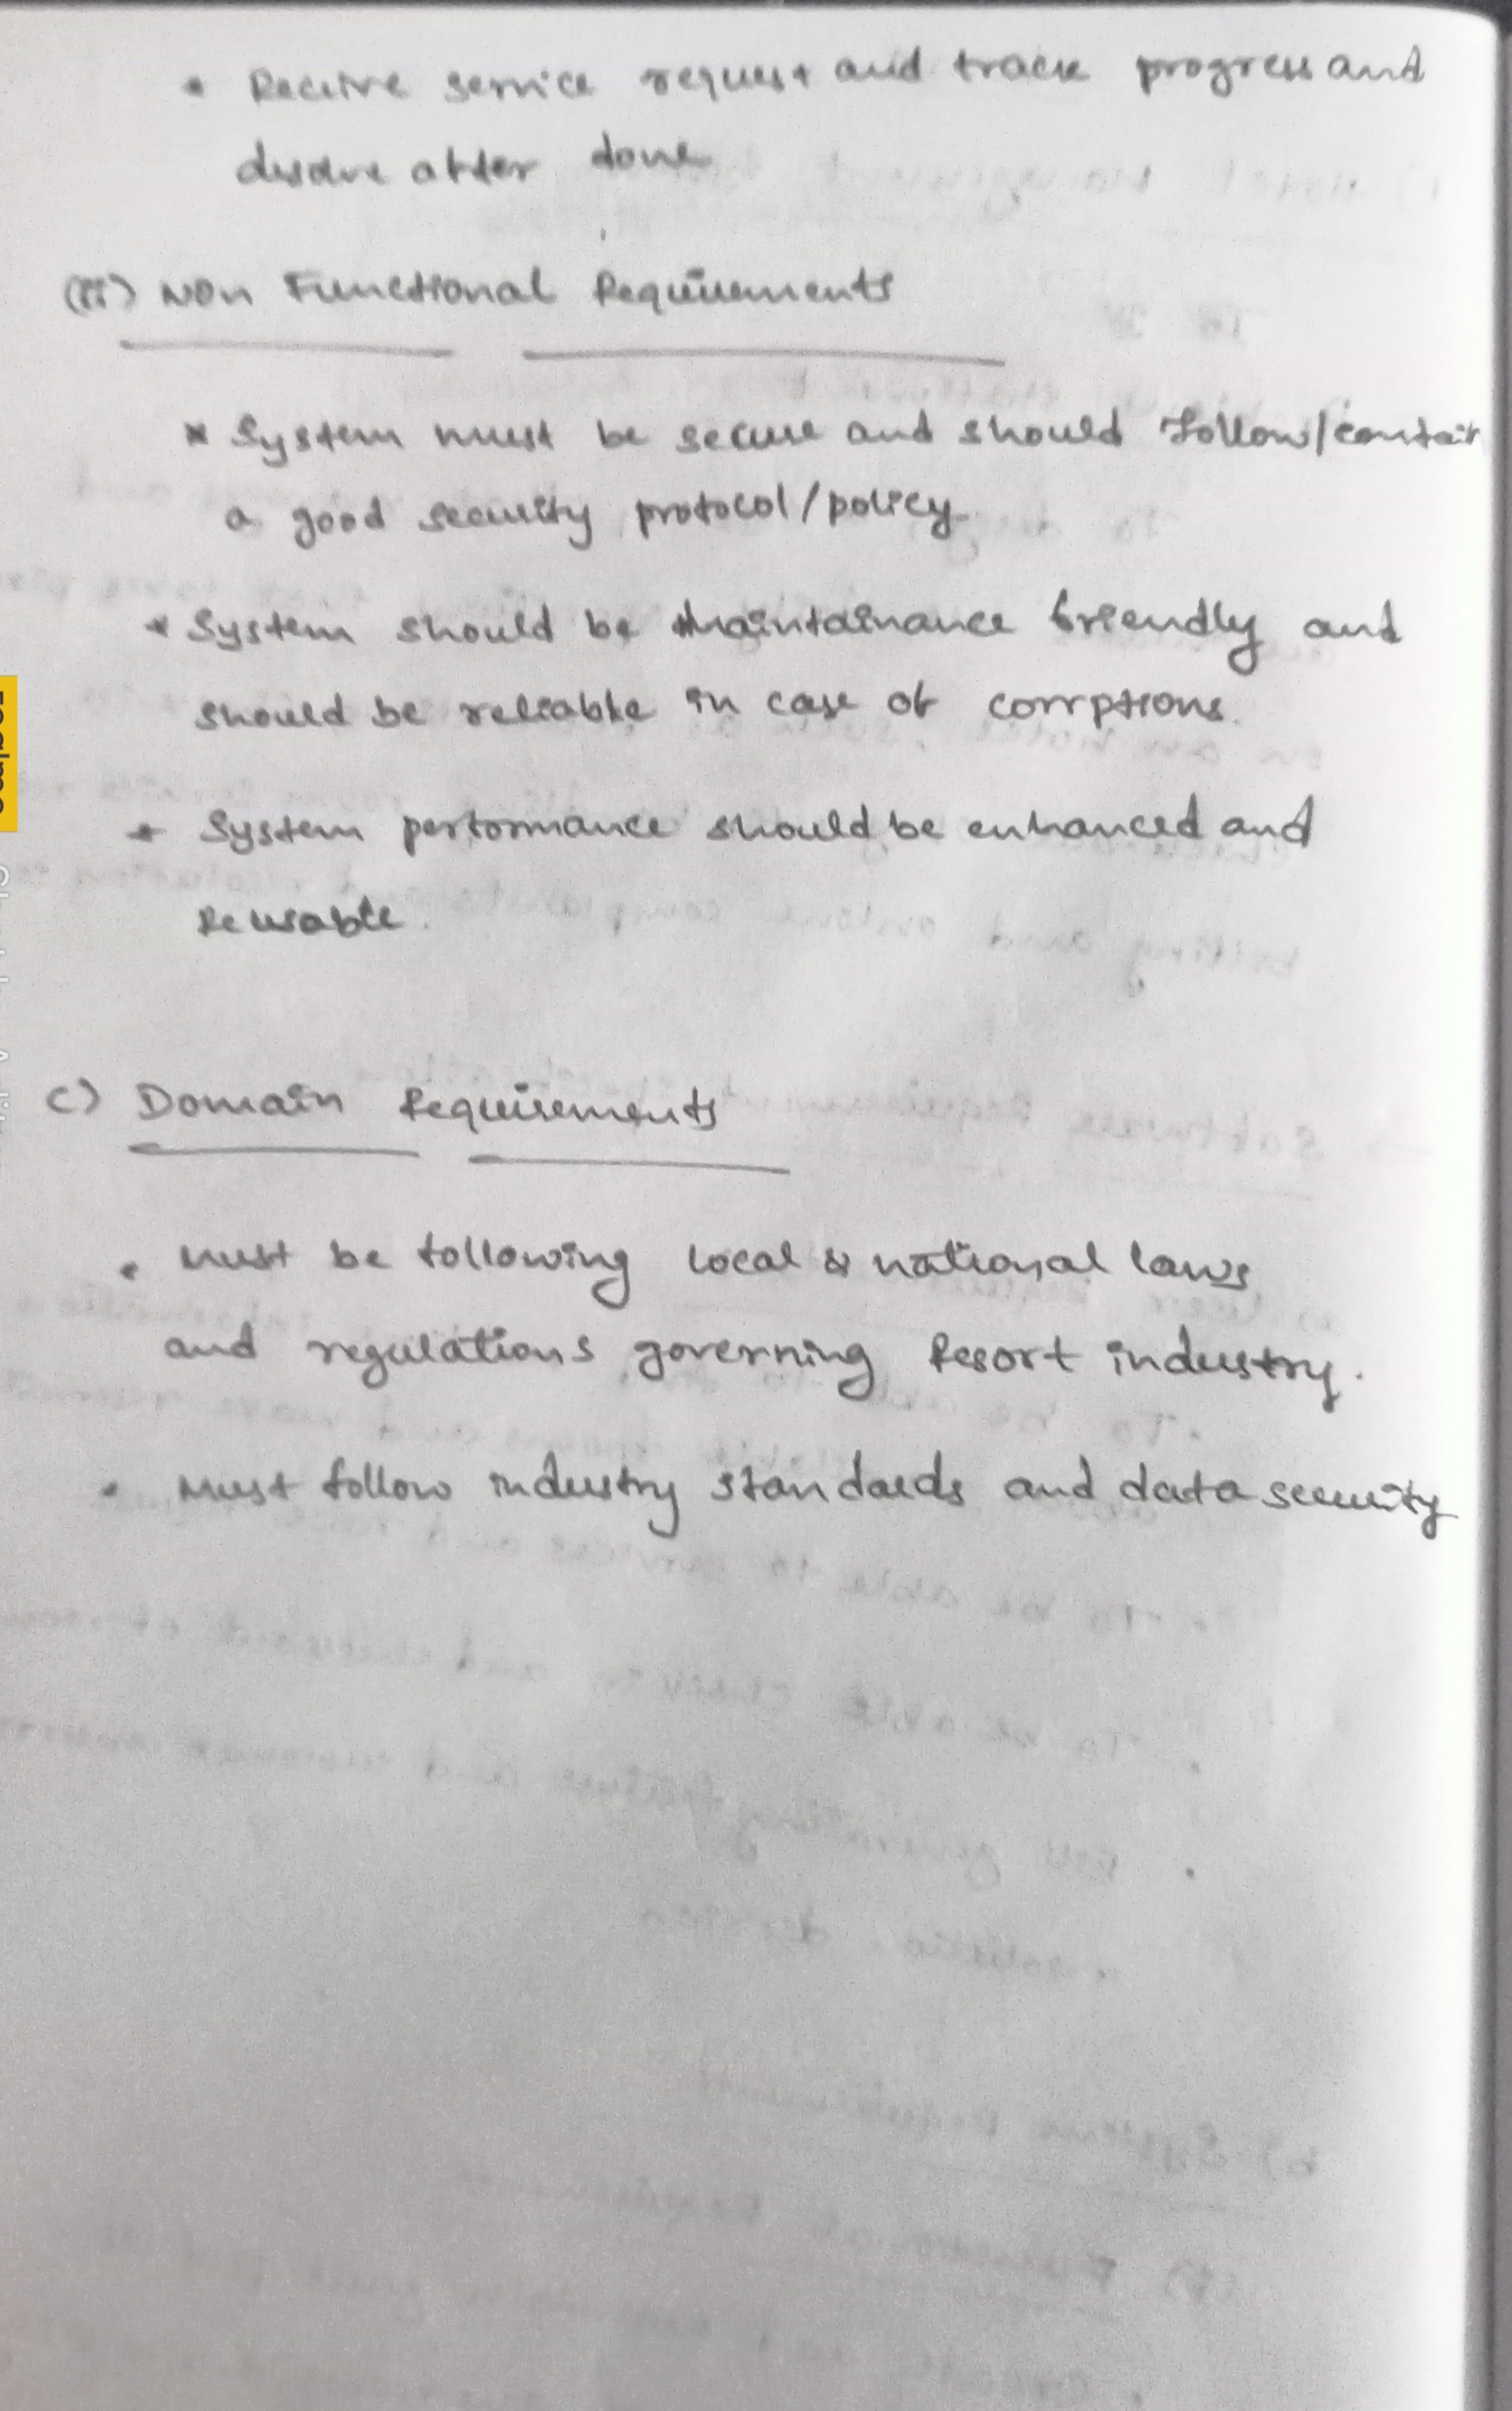 • Receive service request and track progress and
after done
(ii) Non Functional Requirements
* System must be secure and should follow/contain
a good security protocol/policy.
* System should be maintainance friendly and
should be reliable in case of corrptions.
* System performance should be enhanced and
Reusable.
C) Domain Requirements
• Must be following local & national laws
and regulations governing Resort industry.
• Must follow industry standards and data security